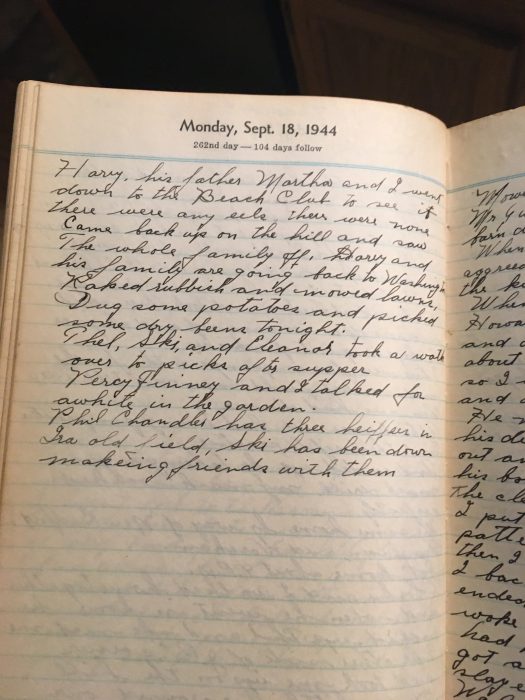 Monday, Sept. 18, 1944
262nd day — 104 days follow
Harry, his father Martha and I went
down to the Beach Club to see if
there were any eels, there were none
Came back up on the hill and saw
The whole family off, Harry and
his family are going back to Washing
Raked rubbish and mowed lawns,
Dug some potatoes and picked
some dry beens tonight.
Thel, Ski, and Eleanor took a walk
over to picks aft supper
Percy Finney and I talked for
awhile in the garden.
Phil Chandler has three heiffer in
Ira old field, Ski has been down
makeing friends with them
Mow
Mr G
barn d
When
agreed
the k
Whe
Howa
and a
about
so I
and a
He n
his de
out an
his bo
the cle
I put
patte
then I
I bac
endea
woke
had
got a
slay e